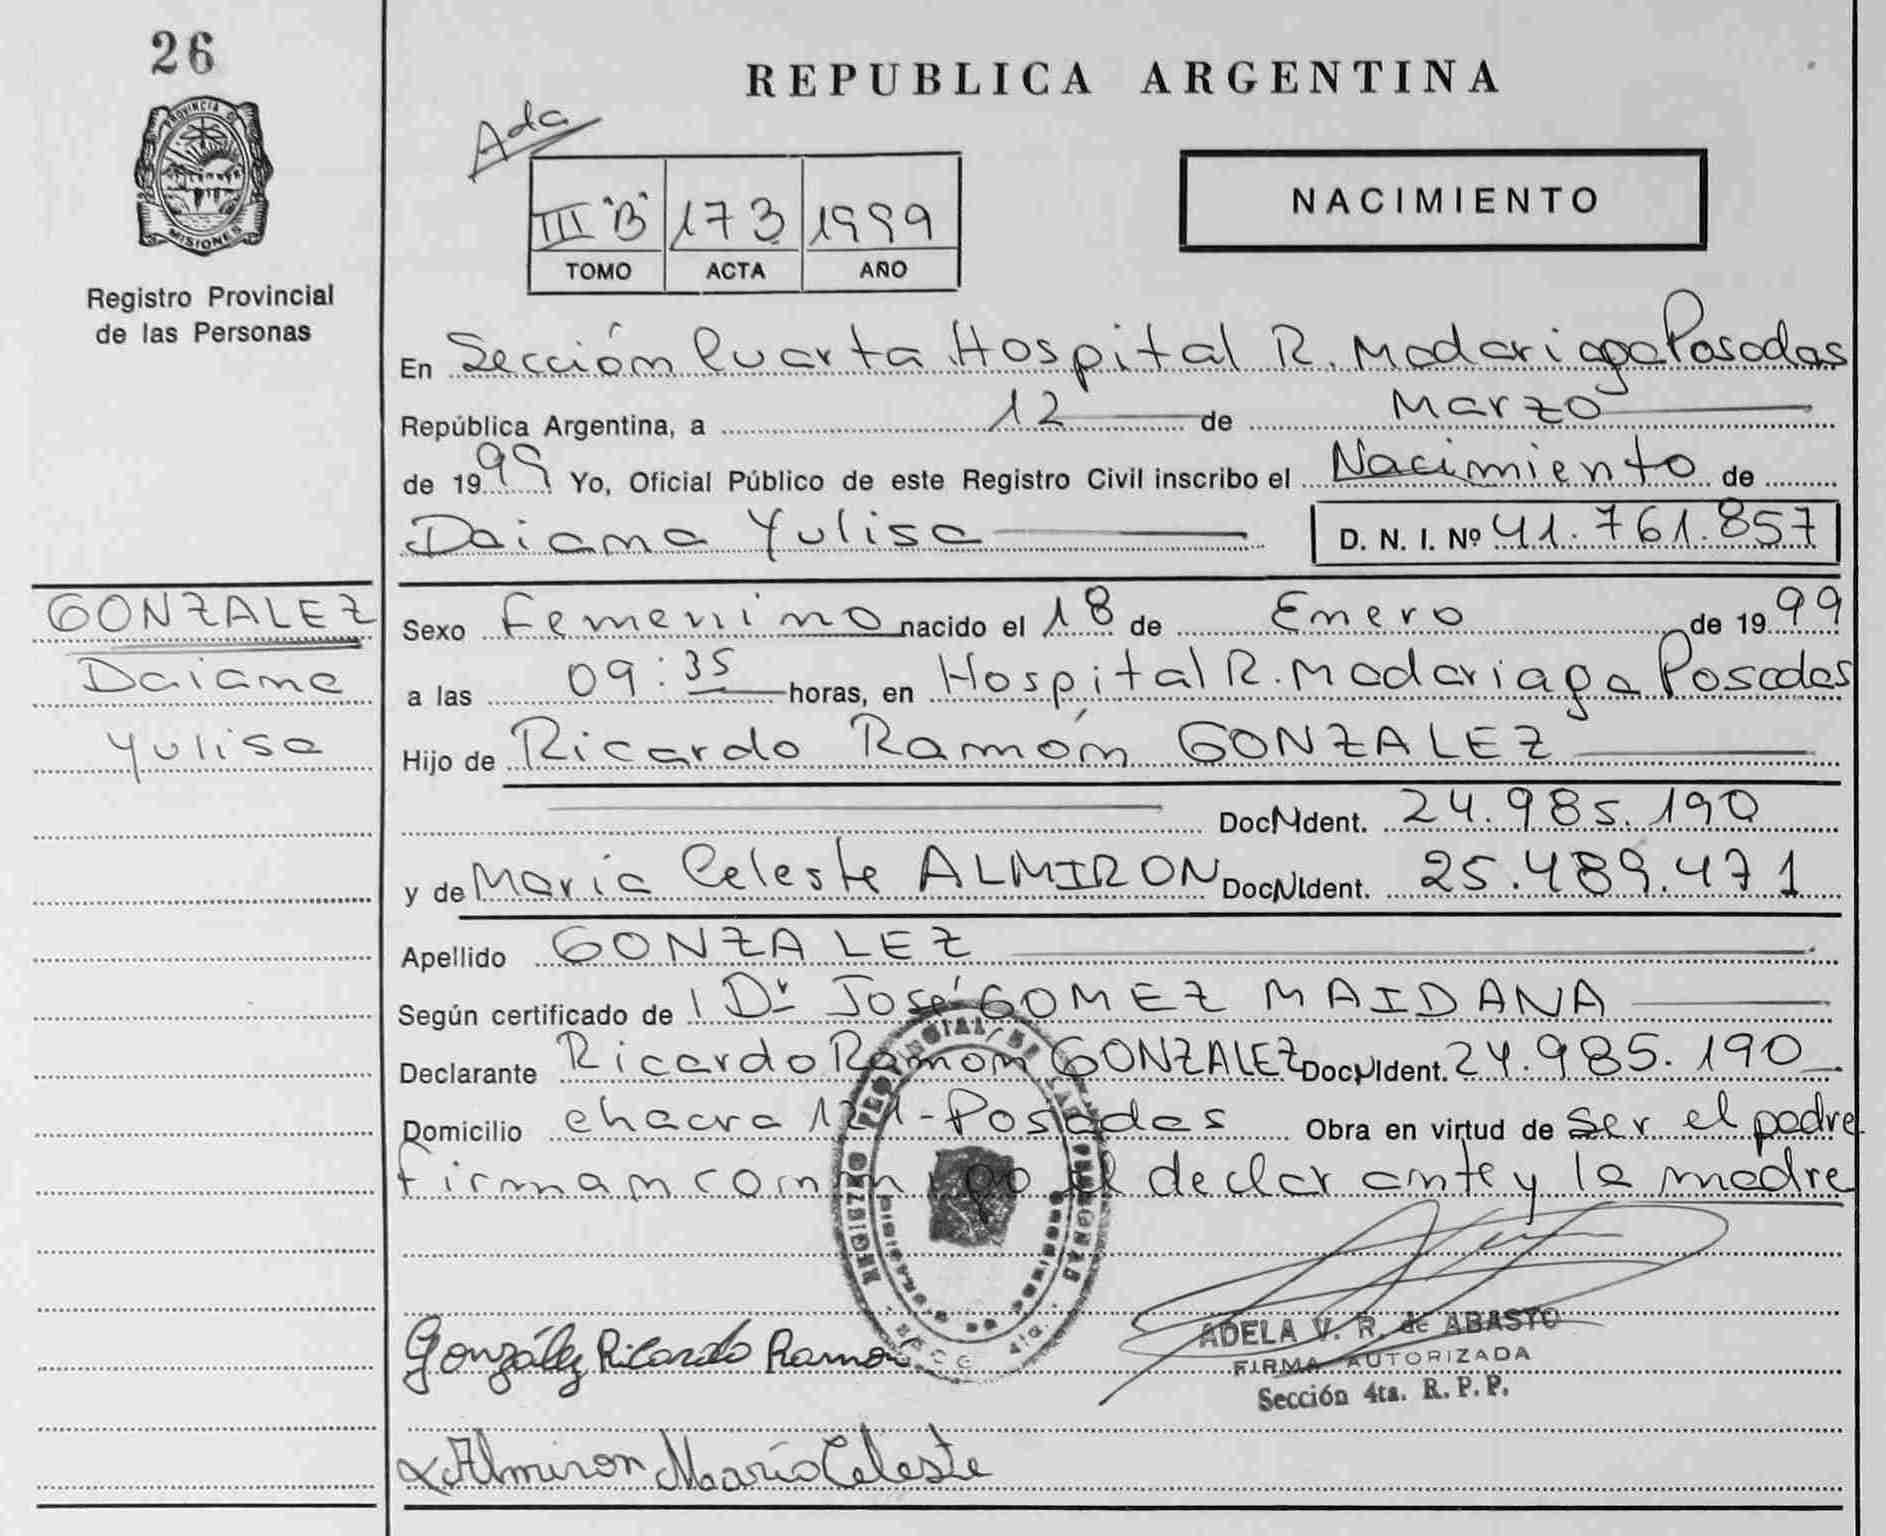 26
PROVINCIA DE
MISIONES
Registro Provincial
de las Personas
REPUBLICA ARGENTINA
Ada
III "B" 173 1999
TOMO ACTA AÑO
NACIMIENTO
En Sección Cuarta Hospital R. Madariaga Posadas
República Argentina, a 12 de Marzo
de 1999 Yo, Oficial Público de este Registro Civil inscribo el Nacimiento de
Daiana Yulisa D. N. I. Nº 41.761.857
GONZALEZ
Daiana
Yulisa
Sexo Femenino nacido el 18 de Enero de 1999
a las 09:35 horas, en Hospital R. Madariaga Posadas
Hijo de Ricardo Ramón GONZALEZ
Doc N Ident. 24.985.190
y de María Celeste ALMIRON Doc N Ident. 25.489.471
Apellido GONZALEZ
Según certificado de Dr José GOMEZ MAIDANA
Declarante Ricardo Ramón GONZALEZ Doc N Ident. 24.985.190
Domicilio chacra - Posadas Obra en virtud de Ser el padre
Firman conmigo el declarante y la madre
REGISTRO PROVINCIAL DE LAS PERSONAS
MISIONES
González Ricardo Ramon
ADELA V. R. de ABASTO
FIRMA AUTORIZADA
Sección 4ta. R. P. P.
Almiron María Celeste